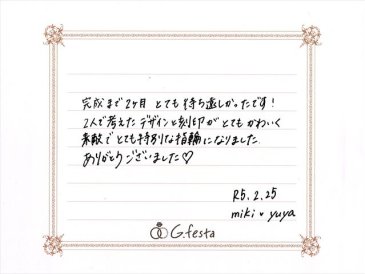 完成まで2ヶ月 とても待ち遠しかったです！
2人で考えたデザインと刻印がとてもかわいく
素敵でとても特別な指輪になりました
ありがとうございました♡
R5.2.25
miki・yuya
G.festa